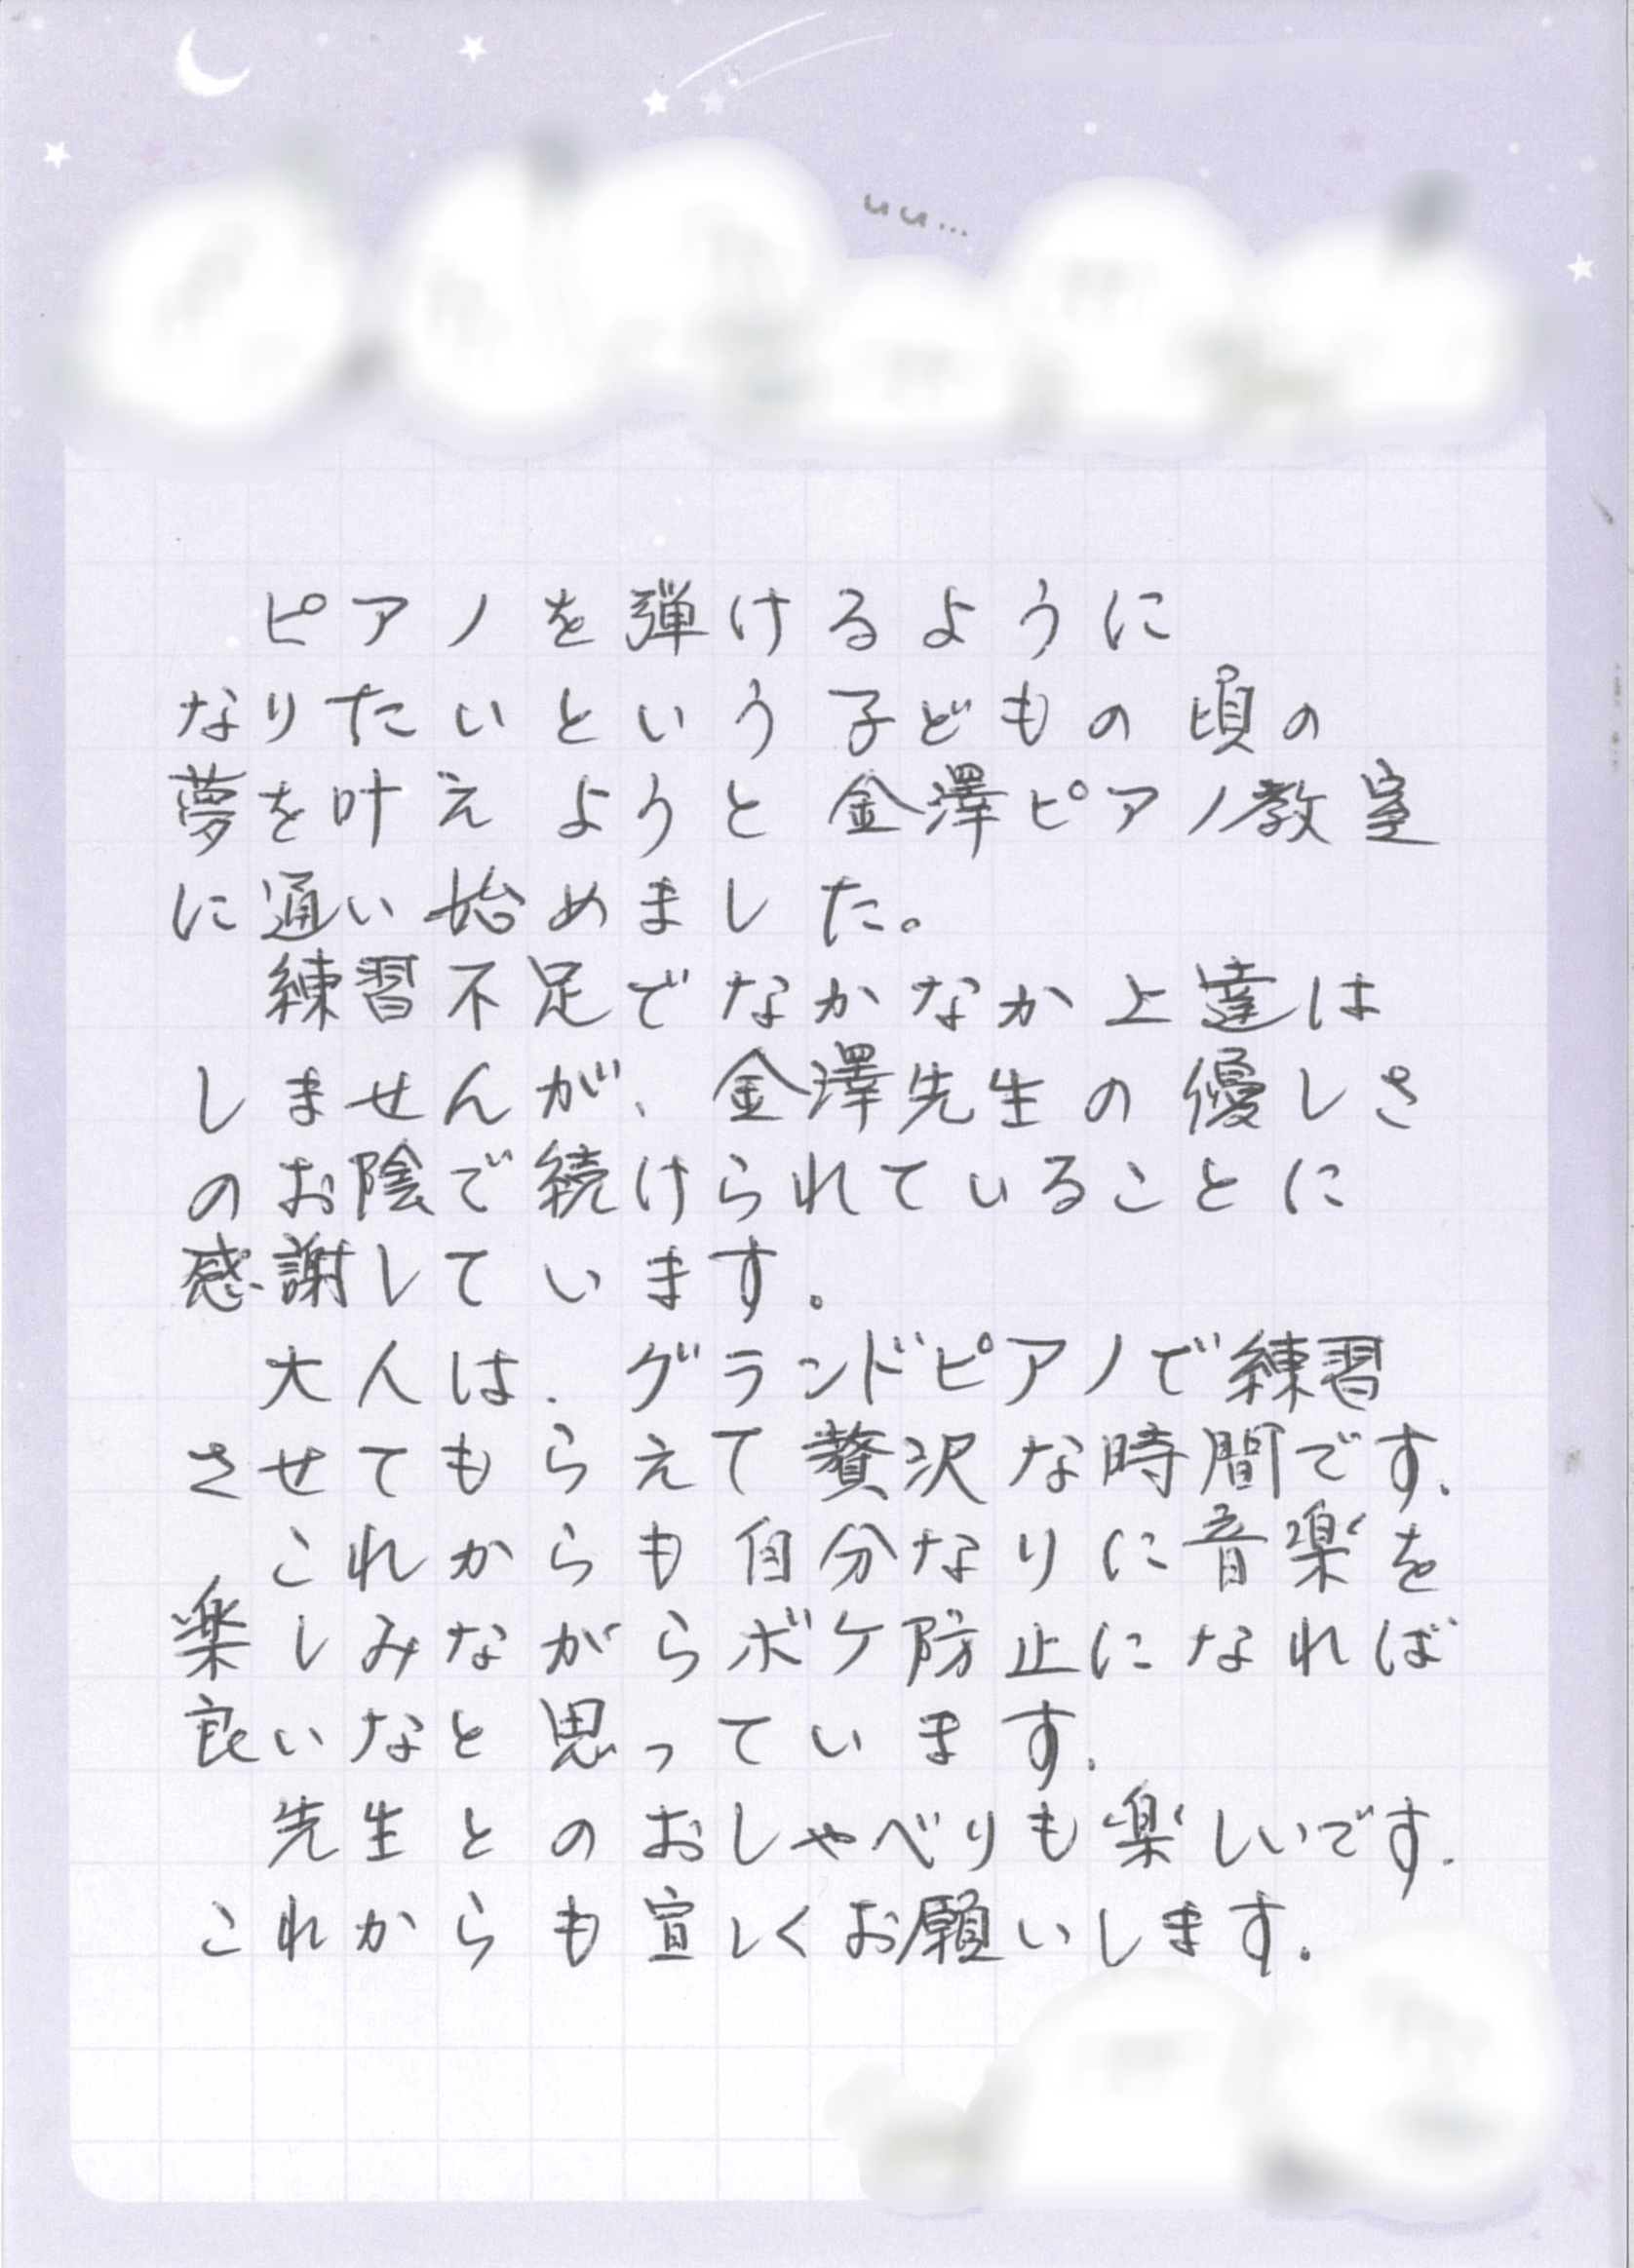 いい…
ピアノを弾けるように
なりたいという子どもの頃の
夢を叶えようと金澤ピアノ教室
に通い始めました。
練習不足でなかなか上達は
しませんが、金澤先生の優しさ
のお陰で続けられていることに
感謝しています。
大人は、グランドピアノで練習
させてもらえて贅沢な時間です。
これからも自分なりに音楽を
楽しみながらボケ防止になれば
良いなと思っています。
先生とのおしゃべりも楽しいです。
これからも宜しくお願いします。